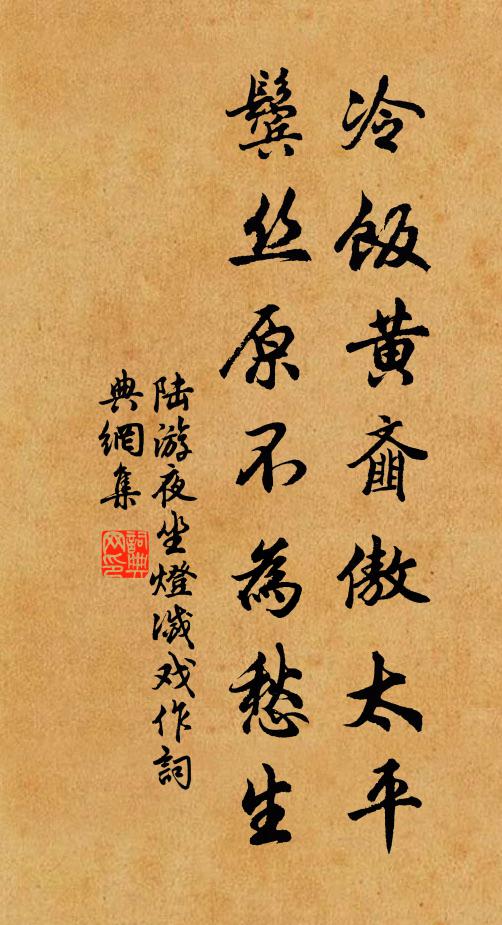 冷飯黄齑傲太平
鬓丝原不為愁生
陆游夜坐燈滅戏作詞
典網集
詞典网印